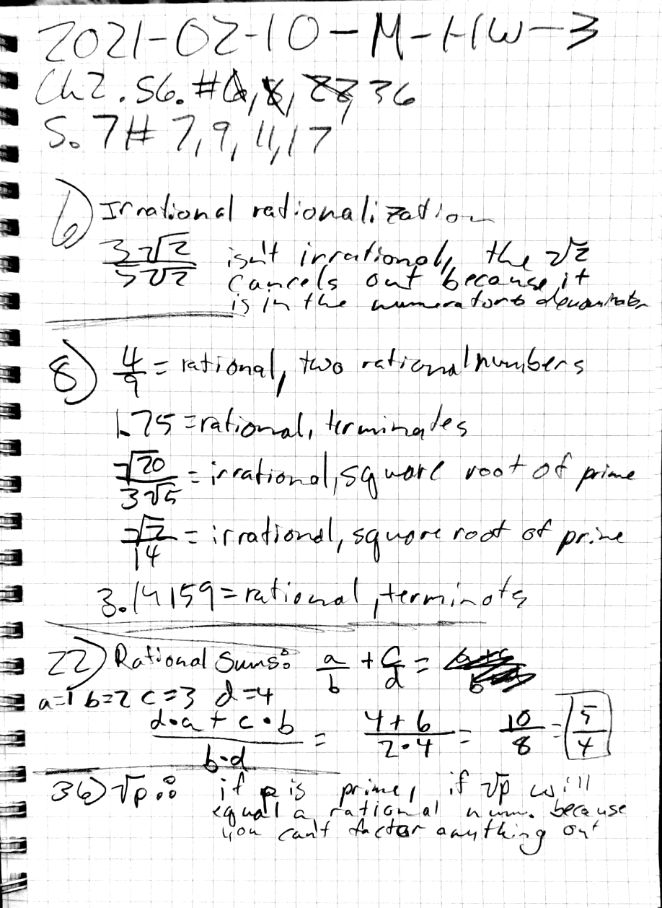 2021-02-10-M-HW-3
Ch2.S6.#6, 8, 22, 36
S.7# 7, 9, 11, 17
6) Irrational rationalization
3√2/5√2 isn't irrational, the √2
cancels out because it
is in the numerator & denominator
8) 4/9 = rational, two rational numbers
1.75 = rational, terminates
√20/3√5 = irrational, square root of prime
√2/14 = irrational, square root of prime
3.14159 = rational, terminats
22) Rational Sums: a/b + c/d =
a=1 b=2 c=3 d=4
d·a + c·b/b·d = 4+6/2·4 = 10/8 = 5/4
36) √p: if p is prime, if √p will
equal a rational num. because
you can't factor anything out